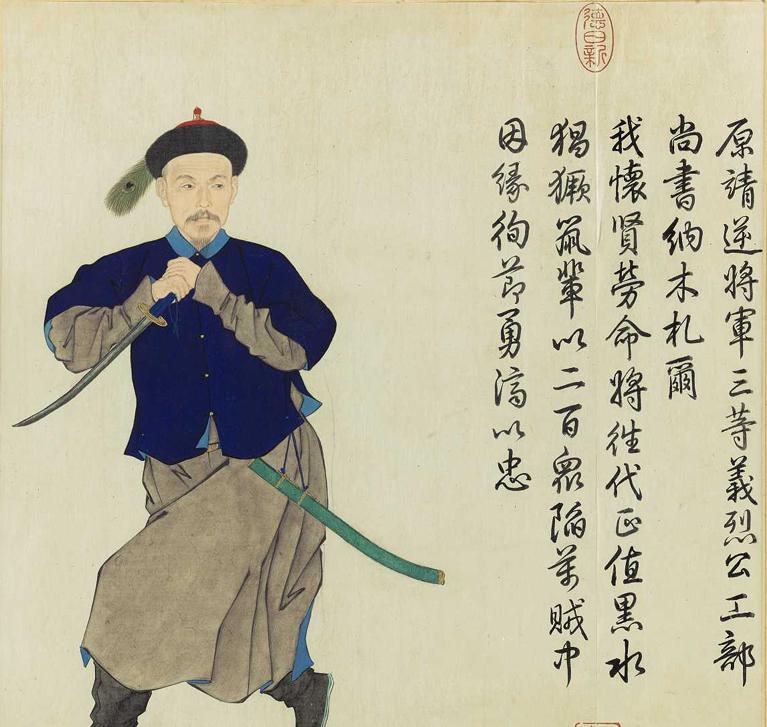 原靖逆將軍三等義烈公工部
尚書納木札爾
我懷賢勞命將往代正值黑水
猖獗鼠輩以二百眾陷萬賊中
因緣徇節勇濟以忠
德日新